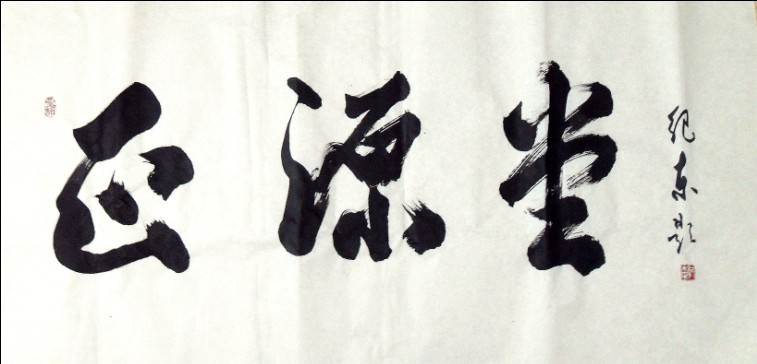 正源堂
纪东题